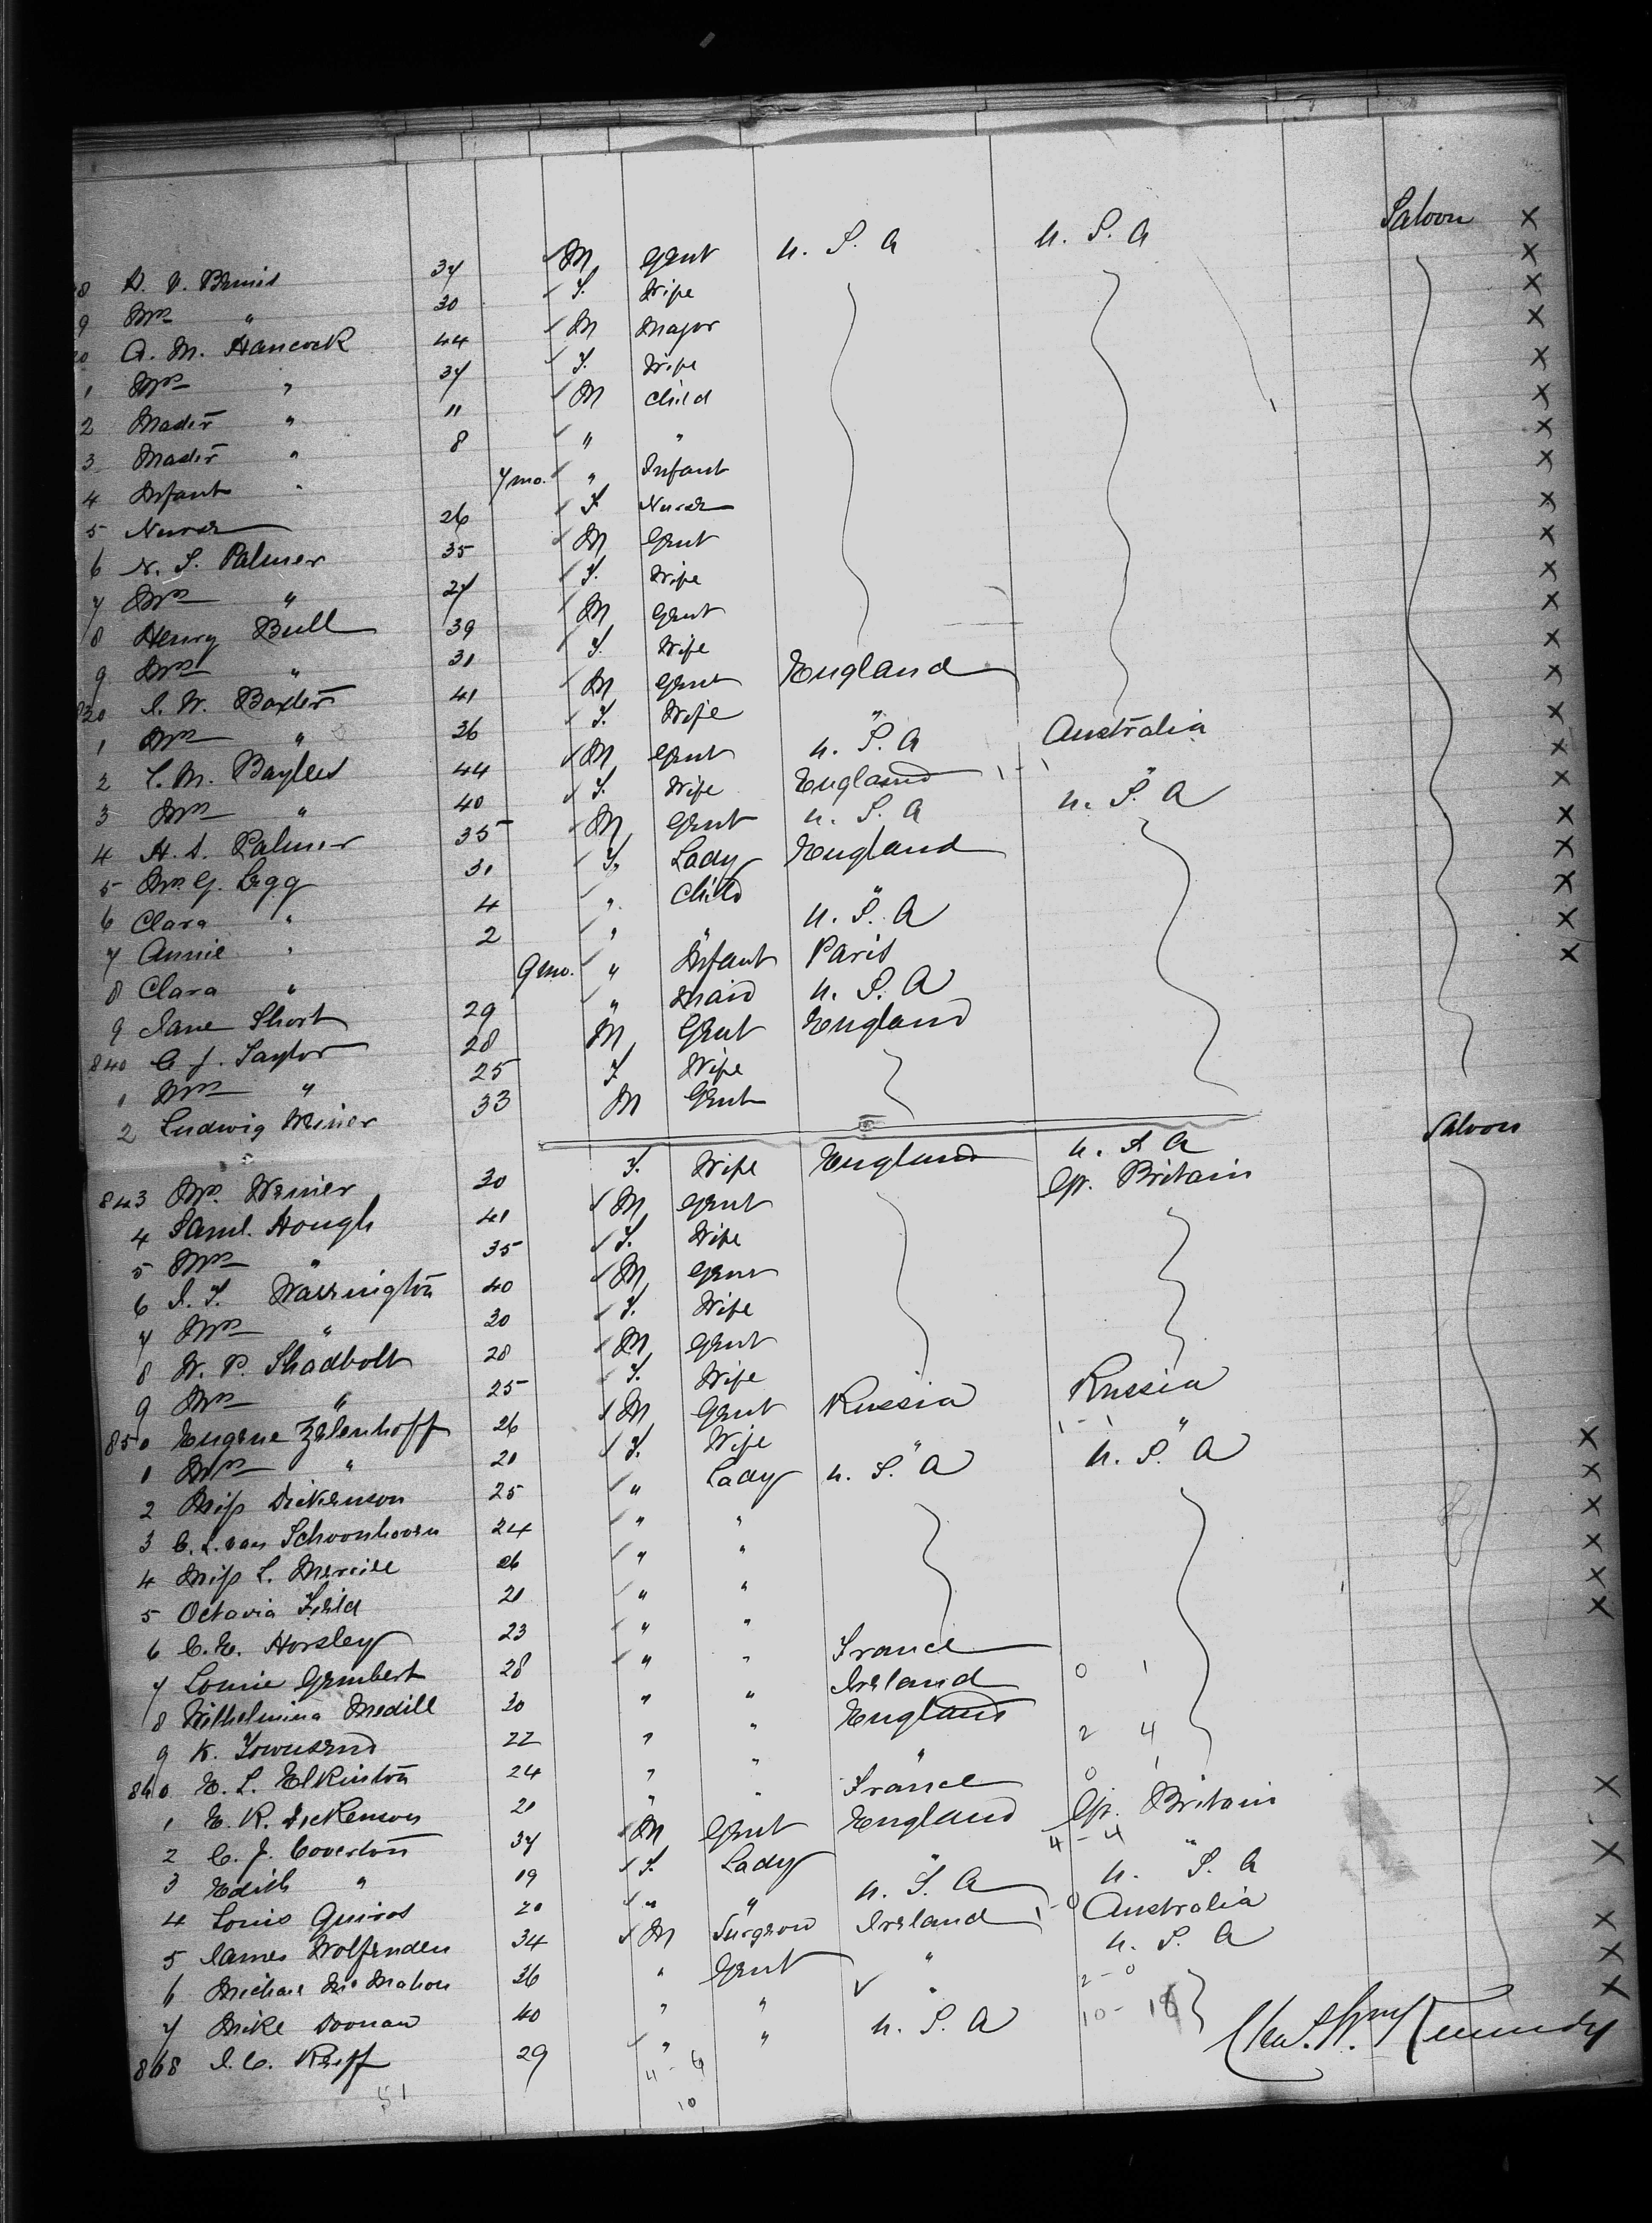 8 D. V. Bemis 37 M Gent U. S. A U. S. A Saloon X
9 Mrs " 30 F. Wife X
20 A. M. Hancock 44 M Major X
1 Mrs " 37 F. Wife X
2 Mastr " 11 M Child X
3 Mastr " 8 " " X
4 Infant " 7 mo. " Infant X
5 Nurse 26 F Nurse X
6 N. S. Palmer 35 M Gent X
7 Mrs " 27 F. Wife X
8 Henry Bull 39 M Gent X
9 Mrs " 31 F. Wife X
830 J. W. Baxter 41 M Gent England X
1 Mrs " 36 F. Wife " X
2 L. M. Bayles 44 M Gent U. S. A Australia X
3 Mrs " 40 F. Wife England " X
4 H. S. Palmer 35 M Gent U. S. A U. S. A X
5 Mrs G. Legg 31 F. Lady England X
6 Clara " 4 " Child " X
7 Annie " 2 " " U. S. A X
8 Clara " 9 mo. " Infant Paris X
9 Jane Short 29 " Maid U. S. A X
840 C. J. Taylor 28 M Gent England
1 Mrs " 25 F Wife
2 Ludwig Weiner 33 M Gent
843 Mrs. Weiner 30 F. Wife England U. S. A Saloon
4 Saml. Hough 41 M Gent Gt. Britain
5 Mrs " 35 F. Wife
6 J. T. Warrington 40 M Gent
7 Mrs " 30 F. Wife
8 W. P. Shadbolt 28 M Gent
9 Mrs " 25 F. Wife
850 Eugene Zelenhoff 26 M Gent Russia Russia
1 Mrs " 21 F. Wife " "
2 Miss Dickenson 25 " Lady U. S. A U. S. A X
3 C. L. van Schoonhoven 24 " " X
4 Miss L. Merrill 26 " " X
5 Octavia Field 21 " " X
6 C. E. Horsley 23 " " X
7 Louie Gembert 28 " " France X
8 Wilhelmina Medill 30 " " Ireland 0 1
9 K. Townsend 22 " " England
860 E. L. Elkinton 24 " " " 2 4
1 E. R. Dickenson 21 " " France 0 1 X
2 C. J. Coverton 37 M Gent England Gt. Britain
3 Edith " 19 F. Lady " 4 - 4 " X
4 Louis Quiros 20 " " U. S. A U. S. A
5 James Wolfenden 34 M Surgeon Ireland 1 - 0 Australia
6 Michael McMahon 36 " Gent " U. S. A X
7 Mike Doonan 40 " " " 2 - 0 X
868 J. C. Reiff 29 " " U. S. A 10 - 18 X
51 4 - 6
10